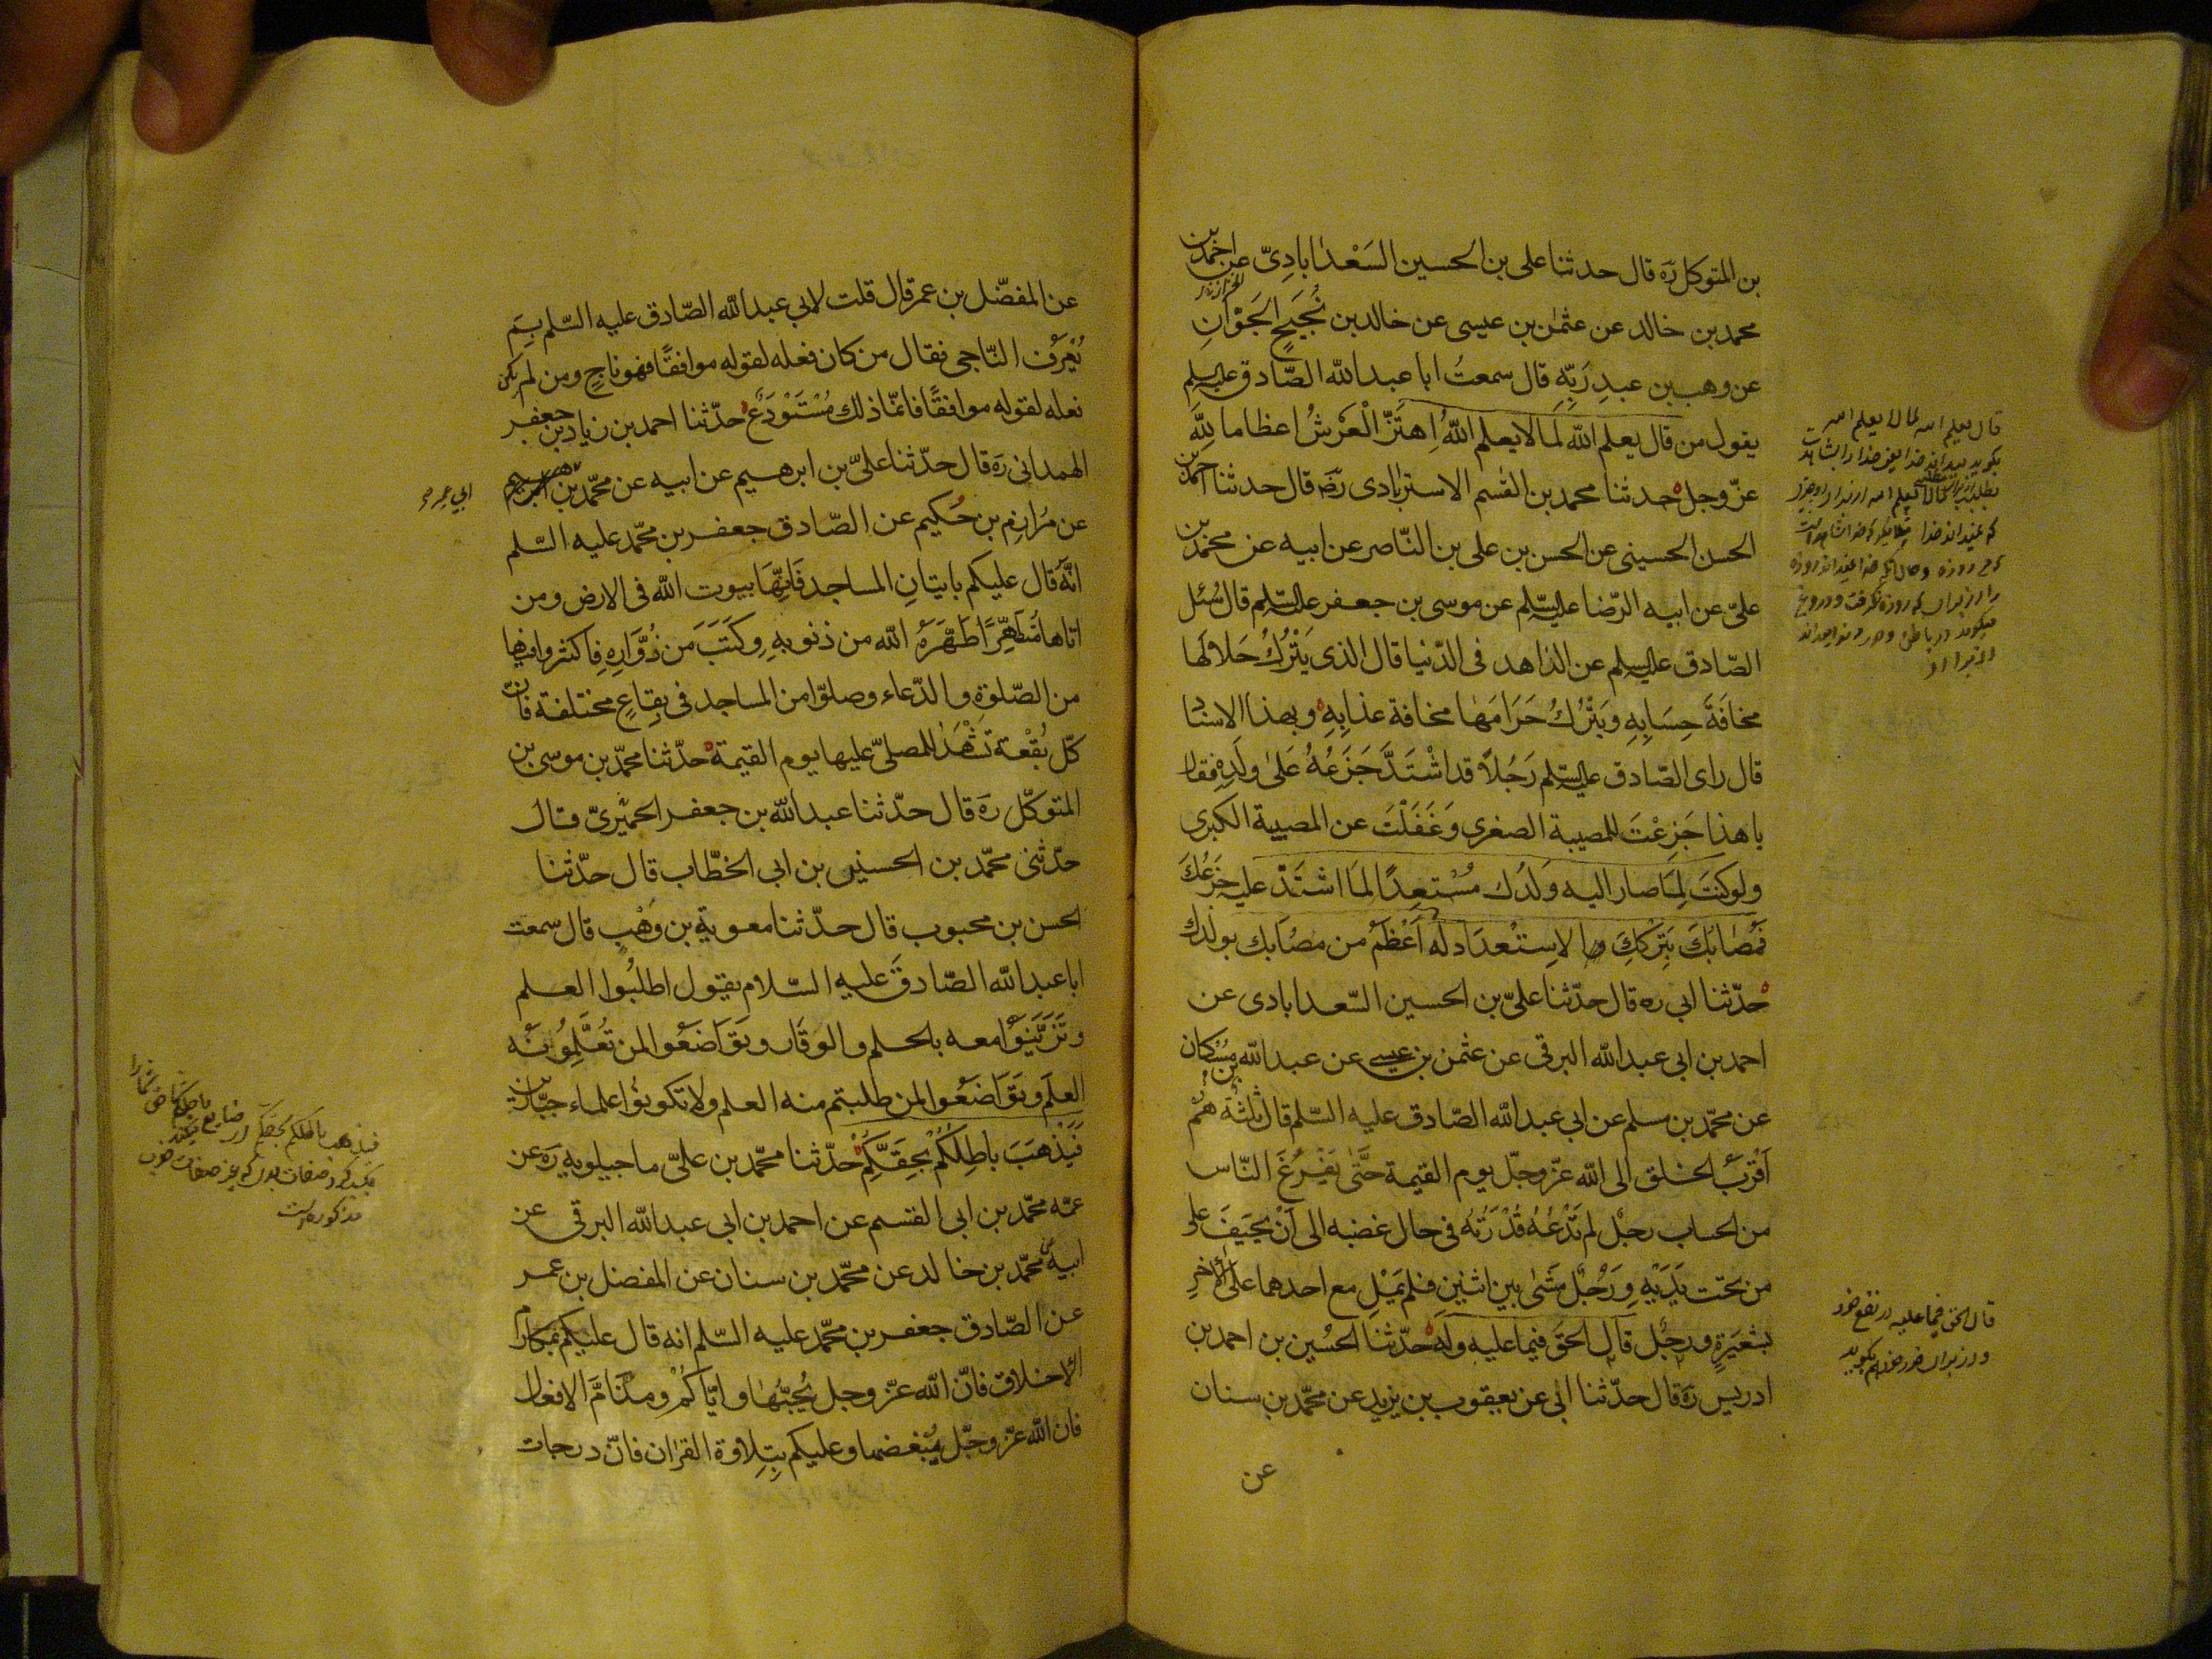 بن المتوكل ره قال حدثنا على بن الحسين السَعْدابادِىّ عن احمد بن
محمد بن خالد عن عثمٰن بن عيسى عن خالد بن نُجَيحٍ الجَوّانِ
عن وهب بن عبدِ رَبِّهِ قال سمعتُ ابا عبدالله الصّادق عليه السلم
يقول من قال يعلم الله لَمَا لا يعلم اللّهُ اِهتَزَّ الْعَرْشُ اعظاما لِلّهِ
عزّ وجل حدثنا محمد بن القٰسم الاسترٰبادى رضّ قال حدثنا احمد بن
الحسن الحسينى عن الحسن بن على بن النّاصر عن ابيه عن محمد بن
علىّ عن ابيه الرّضا عليه السّلم عن موسى بن جعفر عليه السّلم قال سُئل
الصّادق عليه السلم عن الذاهد فى الدّنيا قال الذى يَتْرُكُ حَلالَها
مخافَةَ حِسَابِهِ ويَتْرُكُ حَرَامَهٰا مخافة عذابِهِ وبهذا الاسناد
قال راى الصّادق عليه السّلم رَجُلاً قد اشْتَدَّ جَزَعُهُ عَلىٰ ولَدِهِ فقال
يا هذا جَزِعْتَ للمصيبة الصغرى وَغَفَلْتَ عن المصيبة الكبرى
ولو كنتَ لِمَا صار اليه ولدُك مُسْتعِدًا لمَا اشتَدّ عليه جَزَعُكَ
فَمُصٰابُكَ بِتَركِكَ الاِستْعدَادله اَعْظَمُ من مصٰابك بولدك
حدّثنا ابى ره قال حدّثنا علىّ بن الحسين السّعدابادى عن
احمد بن ابى عبدالله البرقى عن عثمن بن عيسى عن عبدالله بن مُسْكان
عن محمّد بن مسلم عن ابى عبدالله الصّادق عليه السّلم قال ثلٰثةُ هُمْ
اَقْرَبُ الخلق الى الله عزّ وجلّ يوم القيمة حتّٰى يَفْرُغَ النّاس
من الحساب رجلٌ لم تَدْعُهُ قُدْرَتُهُ فى حال غضبه الى اَنْ يَحيفَ على
من تحت يَدَيْهِ ورَجُلٌ مَشٰى بين اثنين فلم يَمِلْ مع احدهما علَى الآخرِ
بشَعيرَةٍ ورجلٌ قال الحقَ فيما عليه ولَهُ حدّثنا الحُسين بن احمد بن
ادريس ره قال حدّثنا ابى عن يعقوب بن يزيد عن محمّد بن سنان
عن
قال يعلم الله لما لا يعلم الله
قال الحق فيما عليه در نفع خود
عن المفضّل بن عمر قال قلت لابى عبدالله الصّادق عليه السّلم بِمَ
يُعْرَفُ النّاجى فقال من كان فعله لقوله موافقًا فهو ناجٍ ومن لم يكن
فعله لقوله موافقًا فانمّا ذلك مُسْتَوْدَعٌ حدّثنا احمد بن زياد بن جعفر
الهمدانى ره قال حدّثنا علىّ بن ابرهيم عن ابيه عن محمّد بن
ابى عمير
عن مُرازِم بن حُكيم عن الصّادق جعفر بن محمّد عليه السّلم
انّه قال عليكم باتيانِ المساجد فَانِّهَا بيوت الله فى الارض ومن
اتاها مُتَطَهِّرًا طَهَّرَهُ الله من ذنوبِهِ وكَتَبَ من زُوّارِهِ فاكثروا فيها
من الصّلوةِ والدّعاء وصلّوا من المساجد فى بِقاعٍ مختلفة فانّ
كلّ بُقْعة تَشْهَدُ للمصلّى عليها يوم القيمة حدّثنا محمّد بن موسى بن
المتوكّل ره قال حدّثنا عبدالله بن جعفر الحميَرىّ قال
حدّثنى محمّد بن الحسين بن ابى الخطّاب قال حدّثنا
الحسن بن محبوب قال حدّثنا معوية بن وَهْبٍ قال سمعت
ابا عبدالله الصّادقَ عليه السّلام يقول اطلُبُوا العلم
وتَزَيَّنُوا معه بالحلم والوقار وتوَاضَعُوا لمن تُعَلِّمُونَه
العلمَ وتوَاضَعُوا لمن طلبتم منه العلم ولا تكونوُا علماء جبّارين
فَيَذْهبَ باطِلُكُمْ بِحقِّكُمْ حدّثنا محمّد بن علىّ ماجيلويه ره عن
عمّه محمّد بن ابى القسم عن احمد بن ابى عبدالله البرقى عن
ابيه محمّد بن خالد عن محمّد بن سنان عن المفضل بن عمر
عن الصّادق جعفر بن محمّد عليه السّلم انه قال عليكم بمكارم
الاخلاق فانّ الله عزّ وجل يُحبّهٰا وايّاكُمْ ومذَامَّ الافعال
فان الله عزّ وجلّ يُبْغضها وعليكم بتِلاوة القران فانّ درجات
فيذهب باطلكم بحقكم